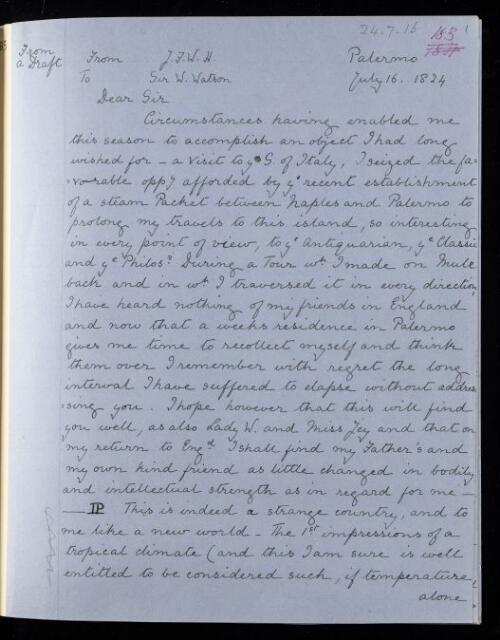 24.7.16 185
From
a Draft
From J.F.W.H. Palermo
To Sir W. Watson July 16. 1824
Dear Sir
Circumstances having enabled me
this season to accomplish an object I had long
wished for – a visit to yᵉ S of Italy, I seized the fa-
-vorable oppʸ afforded by yᵉ recent establishment
of a steam Packet between Naples and Palermo to
prolong my travels to this island, so interesting
in every point of view, to yᵉ Antiquarian, yᵉ Classic
and yᵉ Philosʳ. During a Tour wʰ I made on Mule
back and in wʰ I traversed it in every direction,
I have heard nothing of my friends in England
and now that a weeks residence in Palermo
gives me time to recollect myself and think
them over I remember with regret the long
interval I have suffered to elapse without addres
-sing you. I hope however that this will find
you well, as also Lady W. and Miss Jey and that on
my return to Engᵈ I shall find my Father's and
my own kind friend as little changed in bodily
and intellectual strength as in regard for me –
This is indeed a strange country, and to
me like a new world – The 1ˢᵗ impressions of a
tropical climate (and this I am sure is well
entitled to be considered such, if temperature,
alone